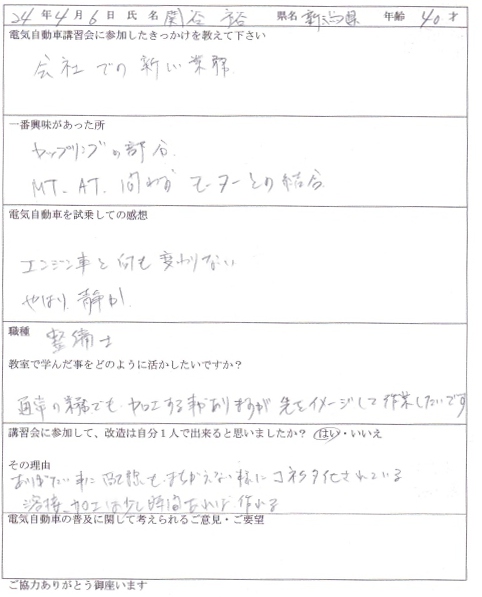 24年4月6日 氏名 関谷 裕 県名 新潟県 年齢 40才
電気自動車講習会に参加したきっかけを教えて下さい
会社での新しい業務
一番興味があった所
カップリングの部分
MT、AT、問わず モーターとの結合
電気自動車を試乗しての感想
エンジン車と何も変わりない
やはり静か!
職種 整備士
教室で学んだ事をどのように活かしたいですか?
通常の業務でも加工する事がありますが 先をイメージして作業したいです
講習会に参加して、改造は自分1人で出来ると思いましたか? はい・いいえ
その理由
配線もまちがえない様にコネクタ化されている
溶接、加工は少し時間あれば 作れる
電気自動車の普及に関して考えられるご意見・ご要望
ご協力ありがとう御座います